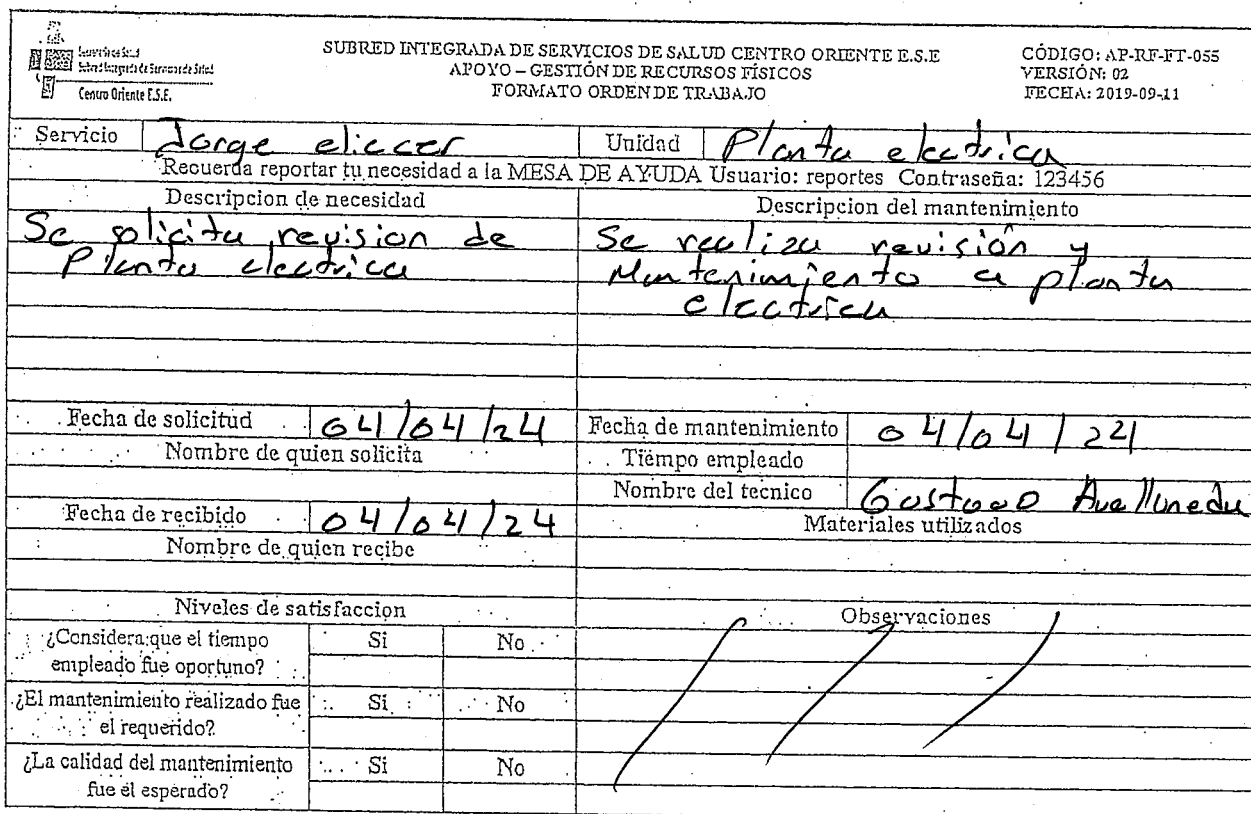 SUBRED INTEGRADA DE SERVICIOS DE SALUD CENTRO ORIENTE E.S.E
APOYO – GESTIÓN DE RECURSOS FÍSICOS
FORMATO ORDEN DE TRABAJO
CÓDIGO: AP-RF-FT-055
VERSIÓN: 02
FECHA: 2019-09-11
Centro Oriente E.S.E.
Servicio Jorge eliecer Unidad Planta electrica
Recuerda reportar tu necesidad a la MESA DE AYUDA Usuario: reportes Contraseña: 123456
Descripcion de necesidad
Se solicita revision de
Planta electrica
Descripcion del mantenimiento
Se realiza revisión y
Mantenimiento a planta
electrica
Fecha de solicitud 04/04/24
Nombre de quien solicita
Fecha de recibido 04/04/24
Nombre de quien recibe
Fecha de mantenimiento 04/04/24
Tiempo empleado
Nombre del tecnico Gustavo Avellaneda
Materiales utilizados
Niveles de satisfaccion
¿Considera que el tiempo
empleado fue oportuno?
Si No
¿El mantenimiento realizado fue
el requerido?
Si No
¿La calidad del mantenimiento
fue el esperado?
Si No
Observaciones